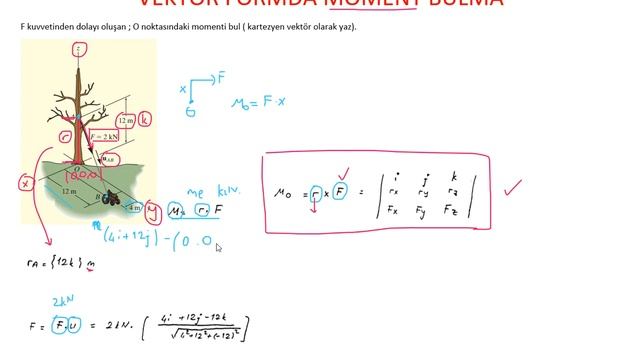 VEKTÖR FORMDA MOMENT BULMA
F kuvvetinden dolayı oluşan ; O noktasındaki momenti bul ( kartezyen vektör olarak yaz).
z
12 m k
r
F = 2 kN
u_AB
O
(0,0,0)
x
12 m
B
4 m y
x F
O
M₀ = F·x
me k.lv.
M. r. F
(4i+12j) - (0.0
r_A = {12k} m
M₀ = r x F = | i j k |
| rx ry rz |
| Fx Fy Fz |
2kN
F = F.u = 2kN. [ 4i +12j -12k / √4²+12²+(-12)² ]